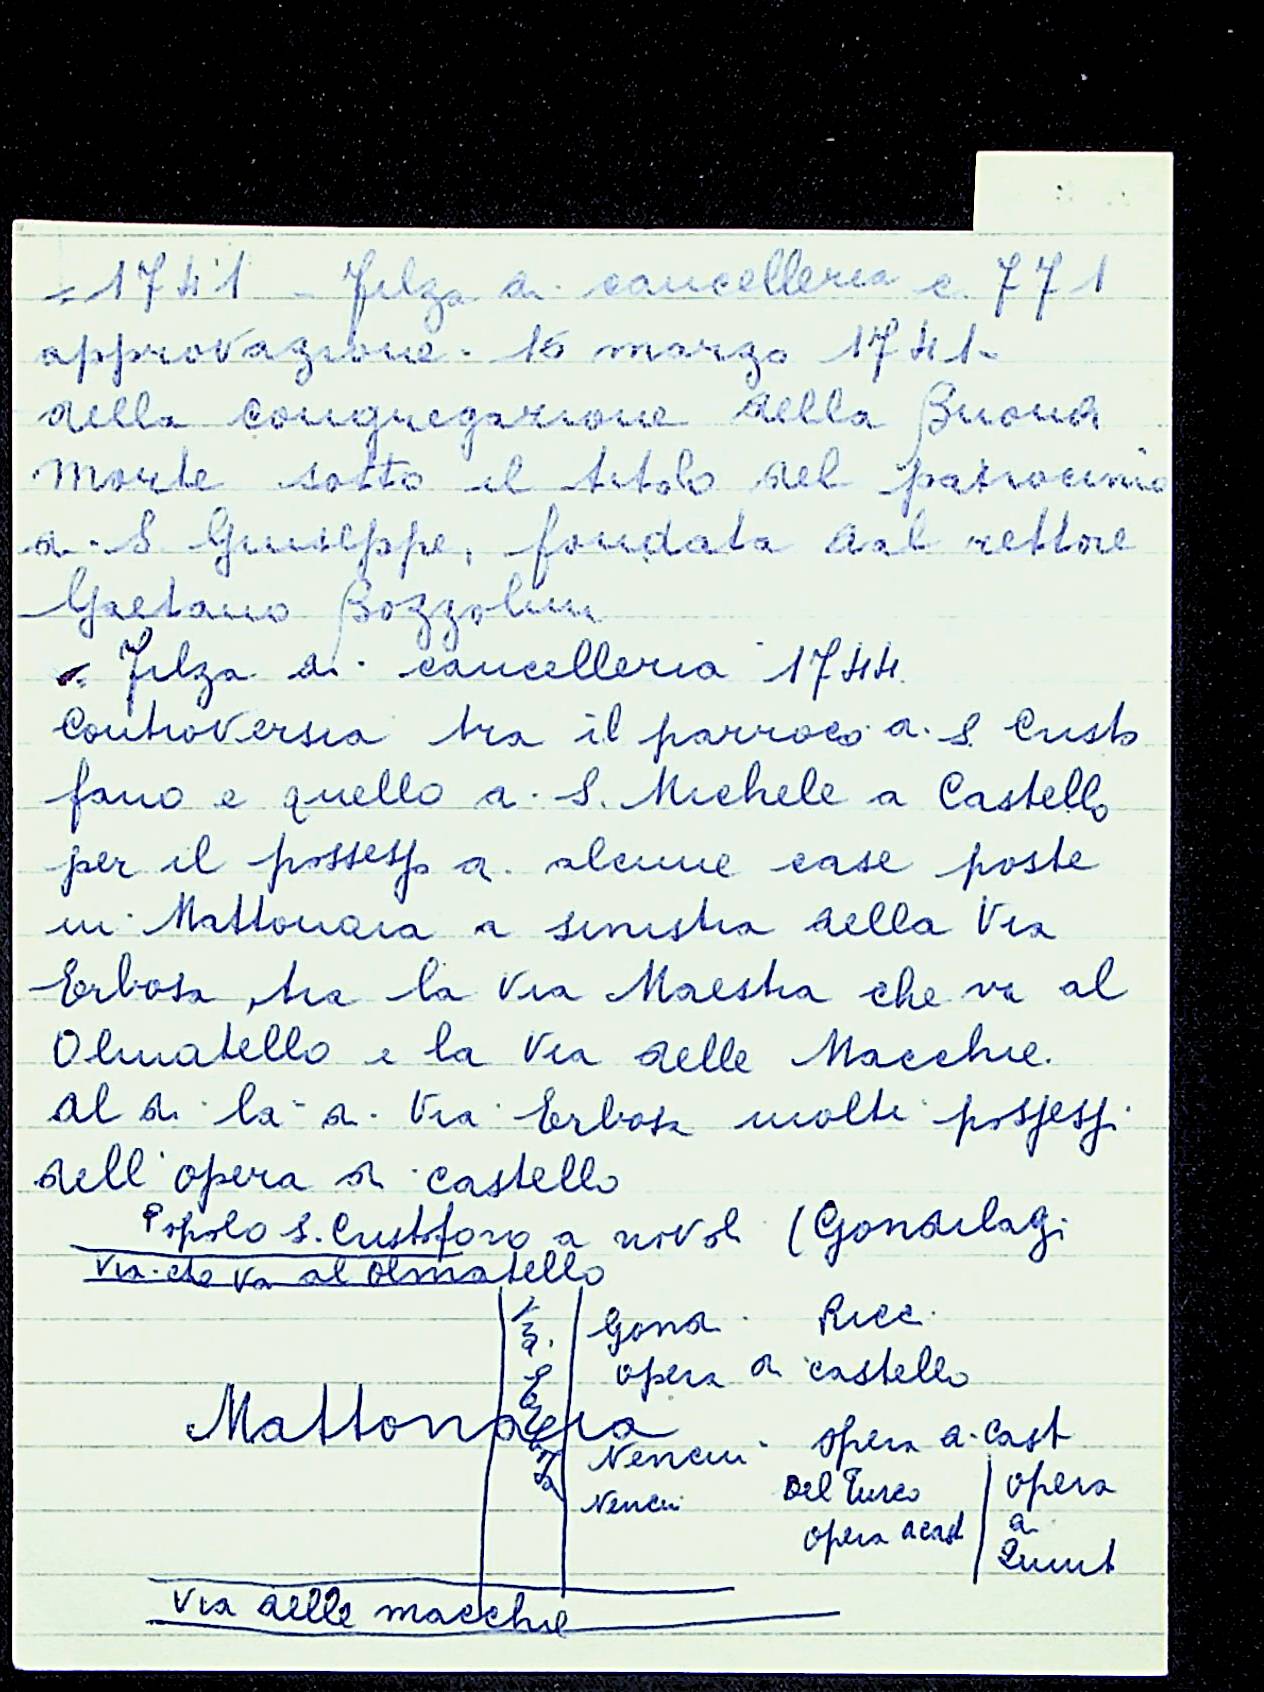 - 1741 - Filza di cancelleria c. 771
approvazione - 16 marzo 1741 -
della congregazione della Buona
Morte sotto il titolo del patrocinio
di S Giuseppe, fondata dal rettore
Gaetano Bozzolini
- Filza di cancelleria 1744.
Controversia tra il parroco di S. Cristo
fano e quello di S. Michele a Castello
per il possesso di alcune case poste
in Mattonaia a sinistra della Via
Erbosa, tra la Via Maestra che va al
Olmatello e la Via delle Macchie.
Al di là di Via Erbosa molti possessi
dell'opera di castello
Popolo S. Cristoforo a novoli (Gondilagi
Via che va al Olmatello
Via Erbosa
Gondi Ricc.
opera di castello
Mattonaia
Nencini opera di Cast
Nencini Del Turco opera
opera di cast di
Quint
Via delle macchie